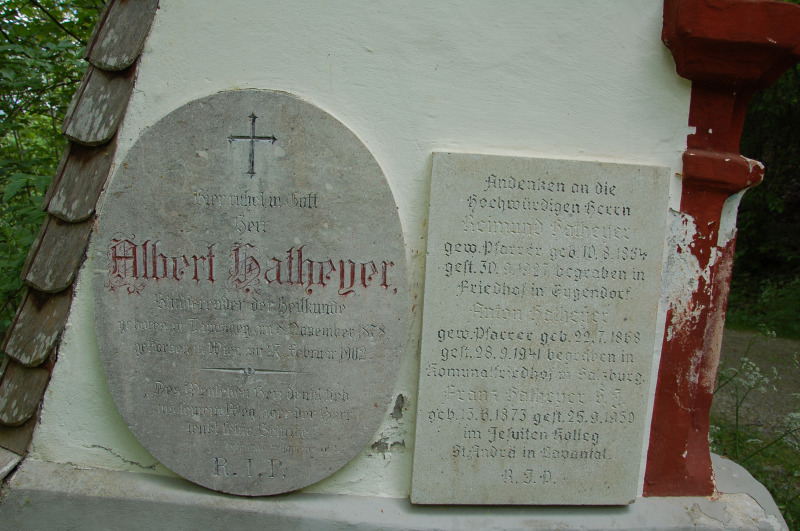 Hier ruhet in Gott
Herr
Albert Hatheyer,
Studierender der Heilkunde
geboren zu November 1878
gestorben Februar 1902
Des Menschen Herz
seinen Weg aber der Herr
R. I. P.
Andenken an die
Hochwürdigen Herrn
Reimund Hatheyer
gew. Pfarrer geb. 10.8.1864
gest. 30.9.1927 begraben in
Friedhof in Eugendorf
Anton Hatheyer
gew. Pfarrer geb. 22.7.1868
gest. 28.9.1941 begraben in
Komunalfriedhof in Salzburg.
Franz Hatheyer S.J.
geb. 13.6.1873 gest. 25.9.1950
im Jesuiten Kolleg
St. Andrä in Lavantal.
R. I. P.